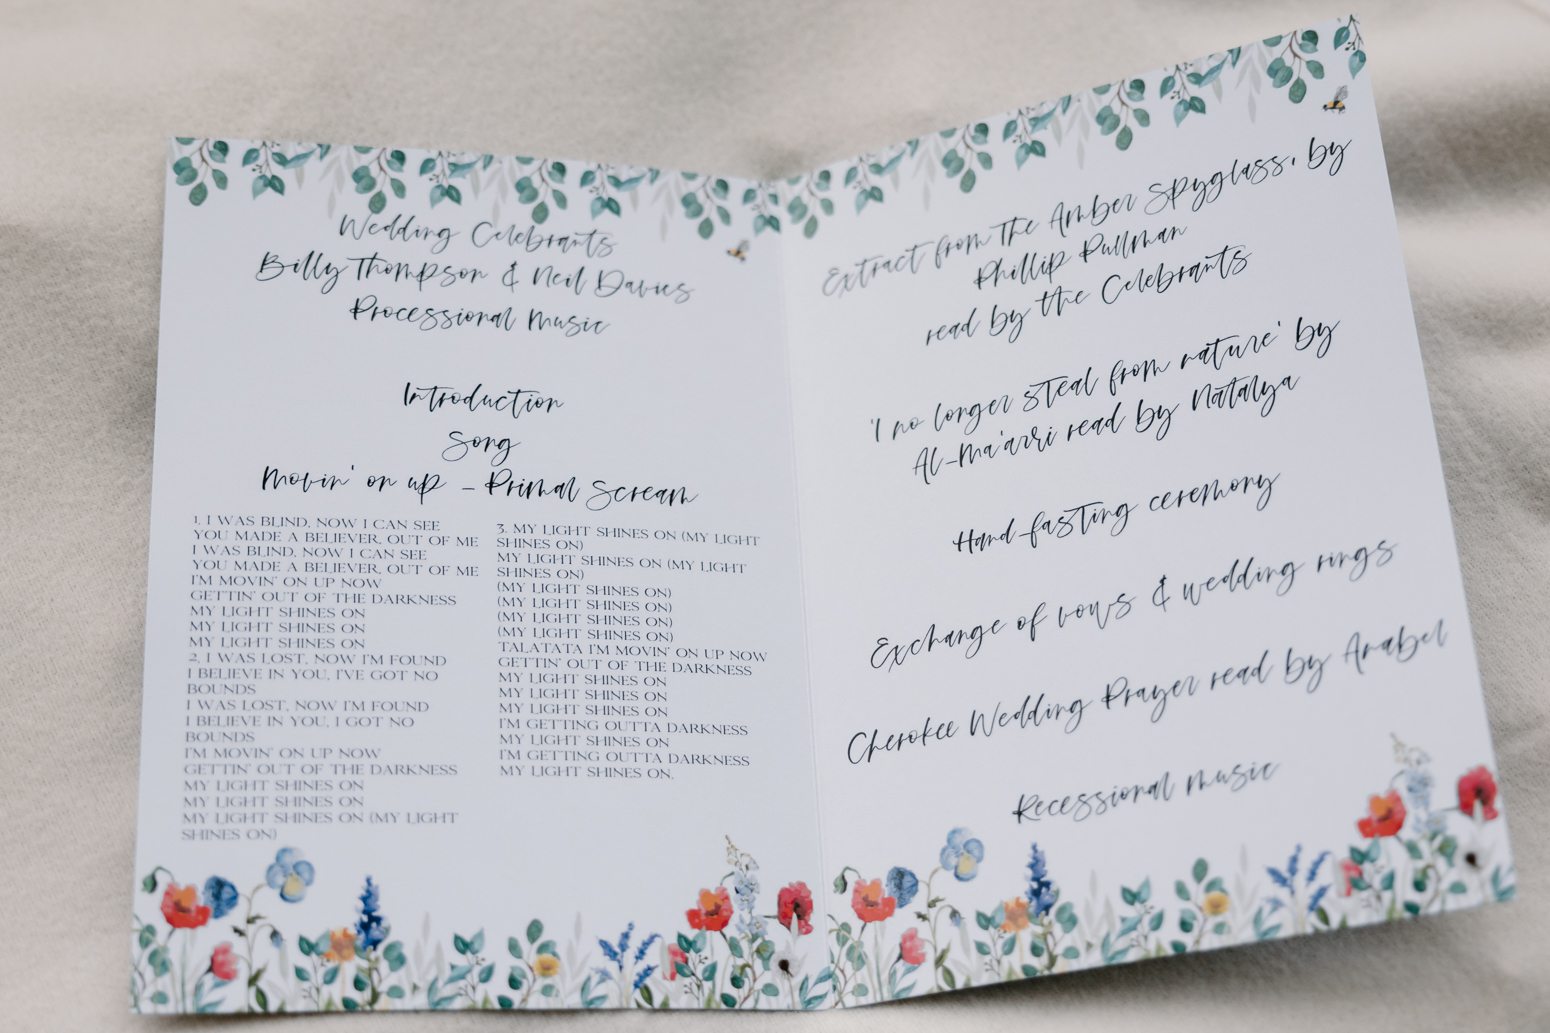 Wedding Celebrants
Billy Thompson & Neil Davies
Processional Music
Introduction
Song
Movin' on up - Primal Scream
1. I WAS BLIND, NOW I CAN SEE
YOU MADE A BELIEVER, OUT OF ME
I WAS BLIND, NOW I CAN SEE
YOU MADE A BELIEVER, OUT OF ME
I'M MOVIN' ON UP NOW
GETTIN' OUT OF THE DARKNESS
MY LIGHT SHINES ON
MY LIGHT SHINES ON
MY LIGHT SHINES ON
2. I WAS LOST, NOW I'M FOUND
I BELIEVE IN YOU, I'VE GOT NO
BOUNDS
I WAS LOST, NOW I'M FOUND
I BELIEVE IN YOU, I GOT NO
BOUNDS
I'M MOVIN' ON UP NOW
GETTIN' OUT OF THE DARKNESS
MY LIGHT SHINES ON
MY LIGHT SHINES ON
MY LIGHT SHINES ON (MY LIGHT
SHINES ON)
3. MY LIGHT SHINES ON (MY LIGHT
SHINES ON)
MY LIGHT SHINES ON (MY LIGHT
SHINES ON)
(MY LIGHT SHINES ON)
(MY LIGHT SHINES ON)
(MY LIGHT SHINES ON)
(MY LIGHT SHINES ON)
TALATATA I'M MOVIN' ON UP NOW
GETTIN' OUT OF THE DARKNESS
MY LIGHT SHINES ON
MY LIGHT SHINES ON
MY LIGHT SHINES ON
I'M GETTING OUTTA DARKNESS
MY LIGHT SHINES ON
I'M GETTING OUTTA DARKNESS
MY LIGHT SHINES ON.
Extract from The Amber Spyglass, by
Phillip Pullman
read by the Celebrants
'I no longer steal from nature' by
Al-Ma'arri read by Natalya
Hand-fasting ceremony
Exchange of vows & wedding rings
Cherokee Wedding Prayer read by Arabel
Recessional music